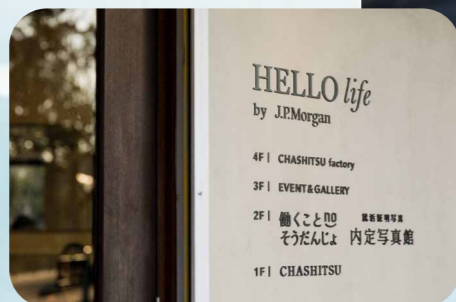 HELLO life
by J.P.Morgan
4F | CHASHITSU factory
3F | EVENT&GALLERY
2F | 働くことno 就活証明写真
そうだんじょ 内定写真館
1F | CHASHITSU